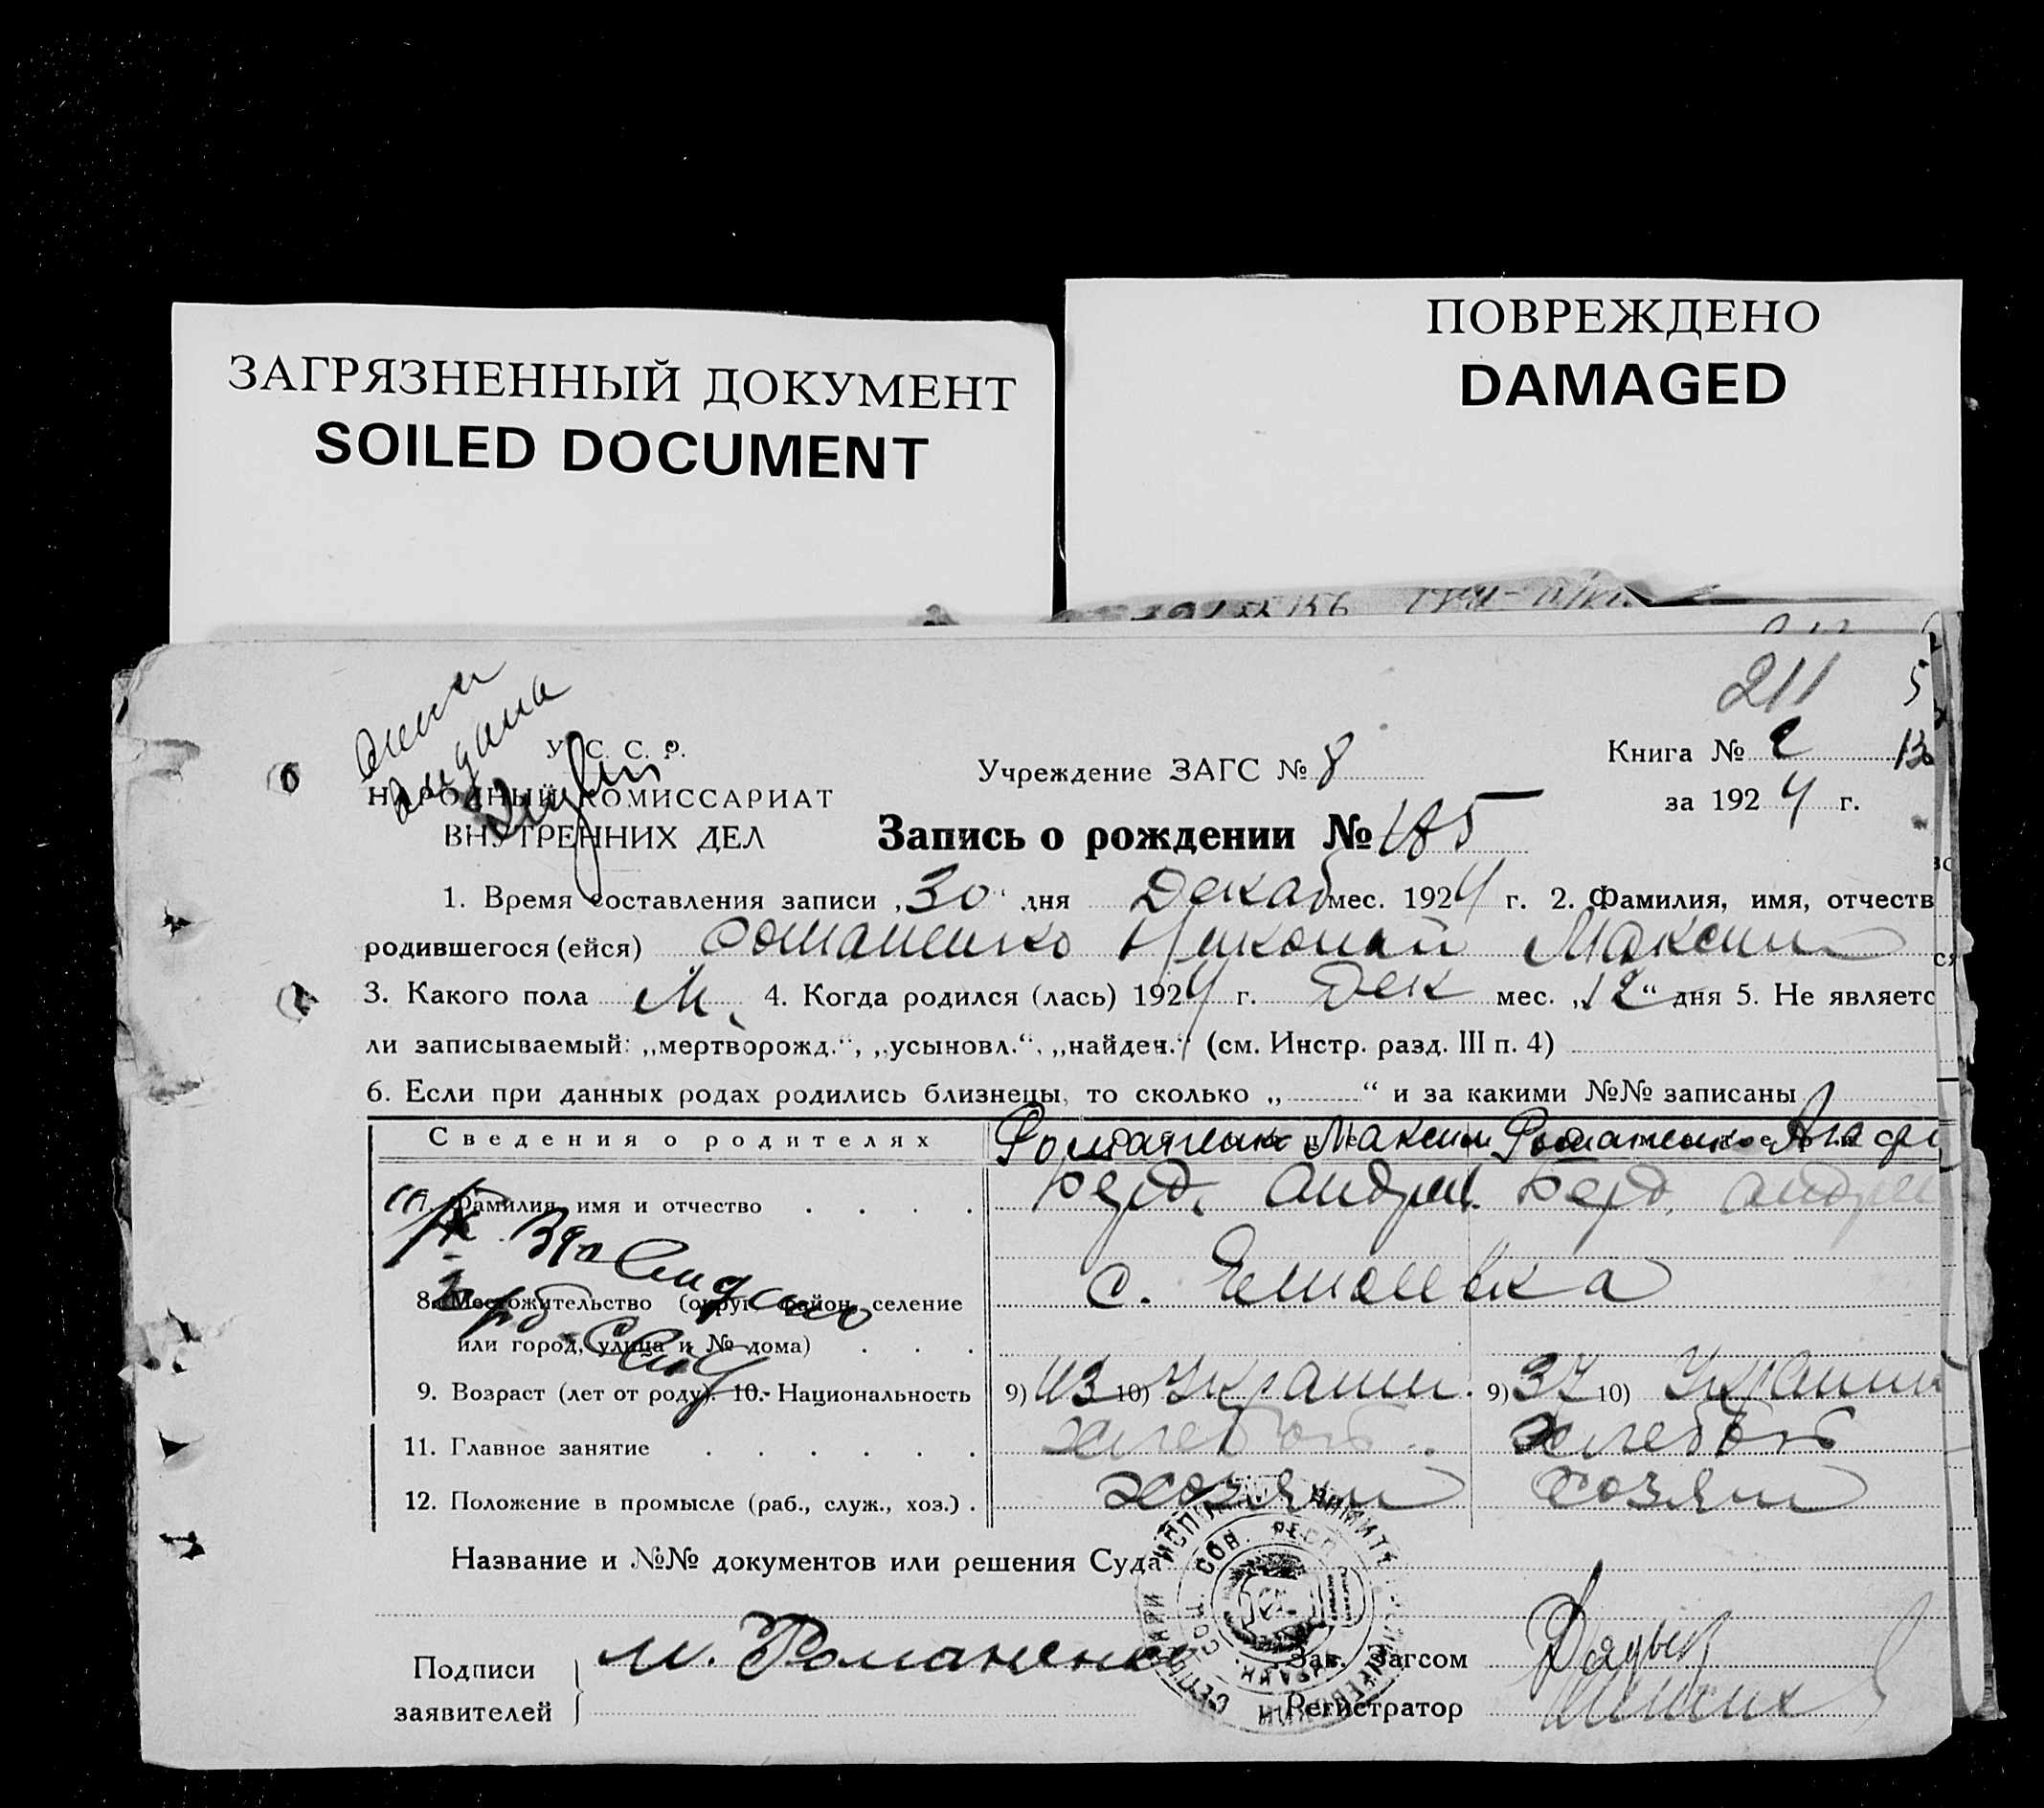 ЗАГРЯЗНЕННЫЙ ДОКУМЕНТ
SOILED DOCUMENT
ПОВРЕЖДЕНО
DAMAGED
211
У. С. С. Р.
НАРОДНЫЙ КОМИССАРИАТ
ВНУТРЕННИХ ДЕЛ
Учреждение ЗАГС № 8
Книга № 2
за 1924 г.
Запись о рождении № 185
1. Время составления записи „30“ дня Декаб мес. 1924 г. 2. Фамилия, имя, отчеств
родившегося (ейся) Романенко Николай Максим
3. Какого пола М. 4. Когда родился (лась) 1924 г. Дек мес. „12“ дня 5. Не являетс
ли записываемый: „мертворожд.“, „усыновл.“, „найден.“ (см. Инстр. разд. III п. 4)
6. Если при данных родах родились близнецы, то сколько „ “ и за какими №№ записаны
Сведения о родителях Романенко Максим Романенко Агаф
7. Фамилия, имя и отчество Берд. Андрии. Берд. Андрии
8. Местожительство (округ, район, селение с.
или город, улица и № дома)
9. Возраст (лет от роду). 10. Национальность 9) 43 10) Украин. 9) 37 10) Украин
11. Главное занятие хлебоб. хлебоб
12. Положение в промысле (раб., служ., хоз.) . хозяин хозяин
Название и №№ документов или решения Суда
Подписи заявителей М. Романенко
Зав. Загсом
Регистратор